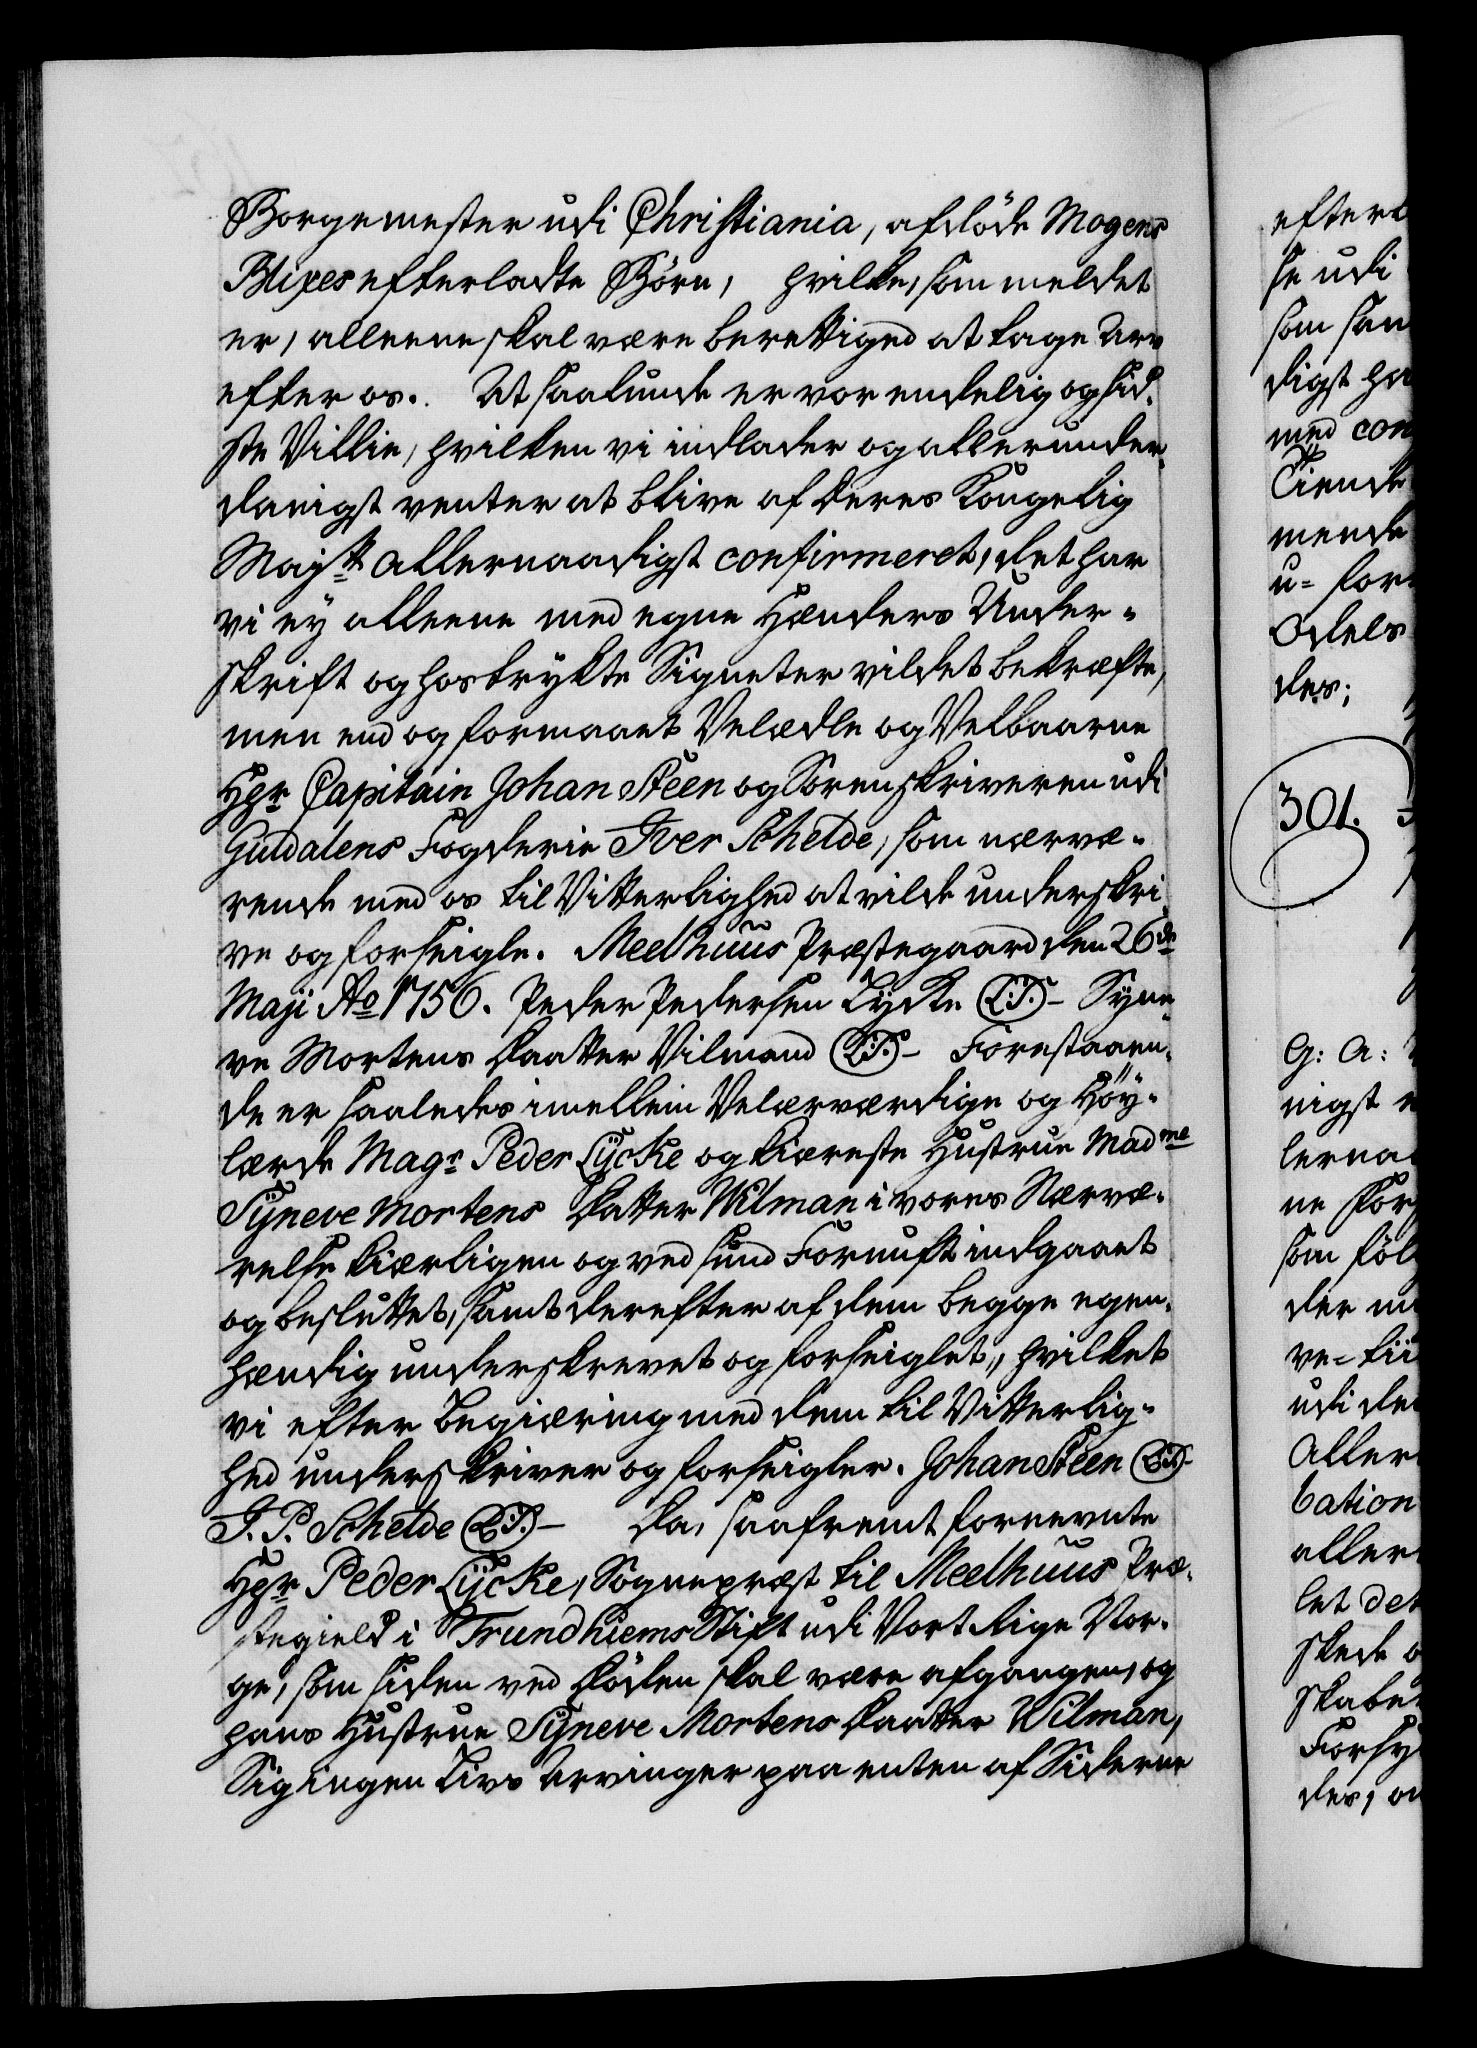 Borgemester udi Christiania, afdöde Mogens
Blixes efterladte Börn, hvilke, som meldet
er, alleene skal være berettiged at tage Arv
efter os. At saalunde er vor endelig og sid-
ste Villie, hvilken vi indlader og allerunder-
danigst venter at blive af Deres Kongelig
Majtt allernaadigst confirmeret, det har
vi ey alleene med egne Hænders Under-
skrift og hostrykte Signeter vildet bekræfte,
men end og formaaet Velædle og Velbaarne
Hgr Capitain Johan Steen og Sorenskriveren udi
Guldalens Fogderie Iver Schelde, som nærvæ-
rende med os til Vitterlighed at vilde underskri-
ve og forseigle. Meelhuus Præstegaard den 26de
Maji Ao 1756. Peder Pedersen Lycke (L.S.) - Syne-
ve Mortens Daatter Vilmand (L.S.) - Forestaaen-
de er saaledes imellem Velærværdige og Höy-
lærde Magr Peder Lycke og kiæreste Hustrue Madme
Syneve Mortens Datter Wilman i vores Nærvæ-
relse kiærligen og ved sund Fornuft indgaaet
og besluttet, samt derefter af dem begge egen-
hændig underskrevet og forseiglet, hvilket
vi efter Begiæring med dem til Vitterlig-
hed underskriver og forseigler. Johan Steen (L.S.) -
I. P. Schelde (L.S.) - Da, saafremt fornevnte
Hgr Peder Lycke, Sognepræst til Meelhuus Præ-
stegield i Trundhiems Stift udi Vort Rige Nor-
ge, som siden ved Döden skal være afgangen, og
hans Hustrue Syneve Mortens Daatter Wilman,
Sig ingen Livs Arvinger paa enten af Siderne
efterl
se udi
som saa
digst ha
med con
Tiende
mende
u- for
Odels
des;
301.
G: A:
nigst
lernaa
ne For
som föl
der m
ve- tii
udi de
Aller
bation
aller
let det
skede o
skabe
Forsy
des, o